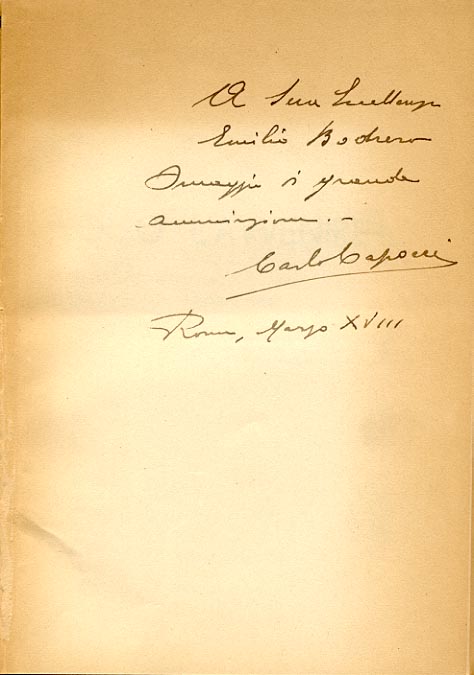 A Sua Eccellenza
Emilio Bodrero
Omaggio di grande
ammirazione. -
Carlo Capocci
Roma, Marzo XVIII